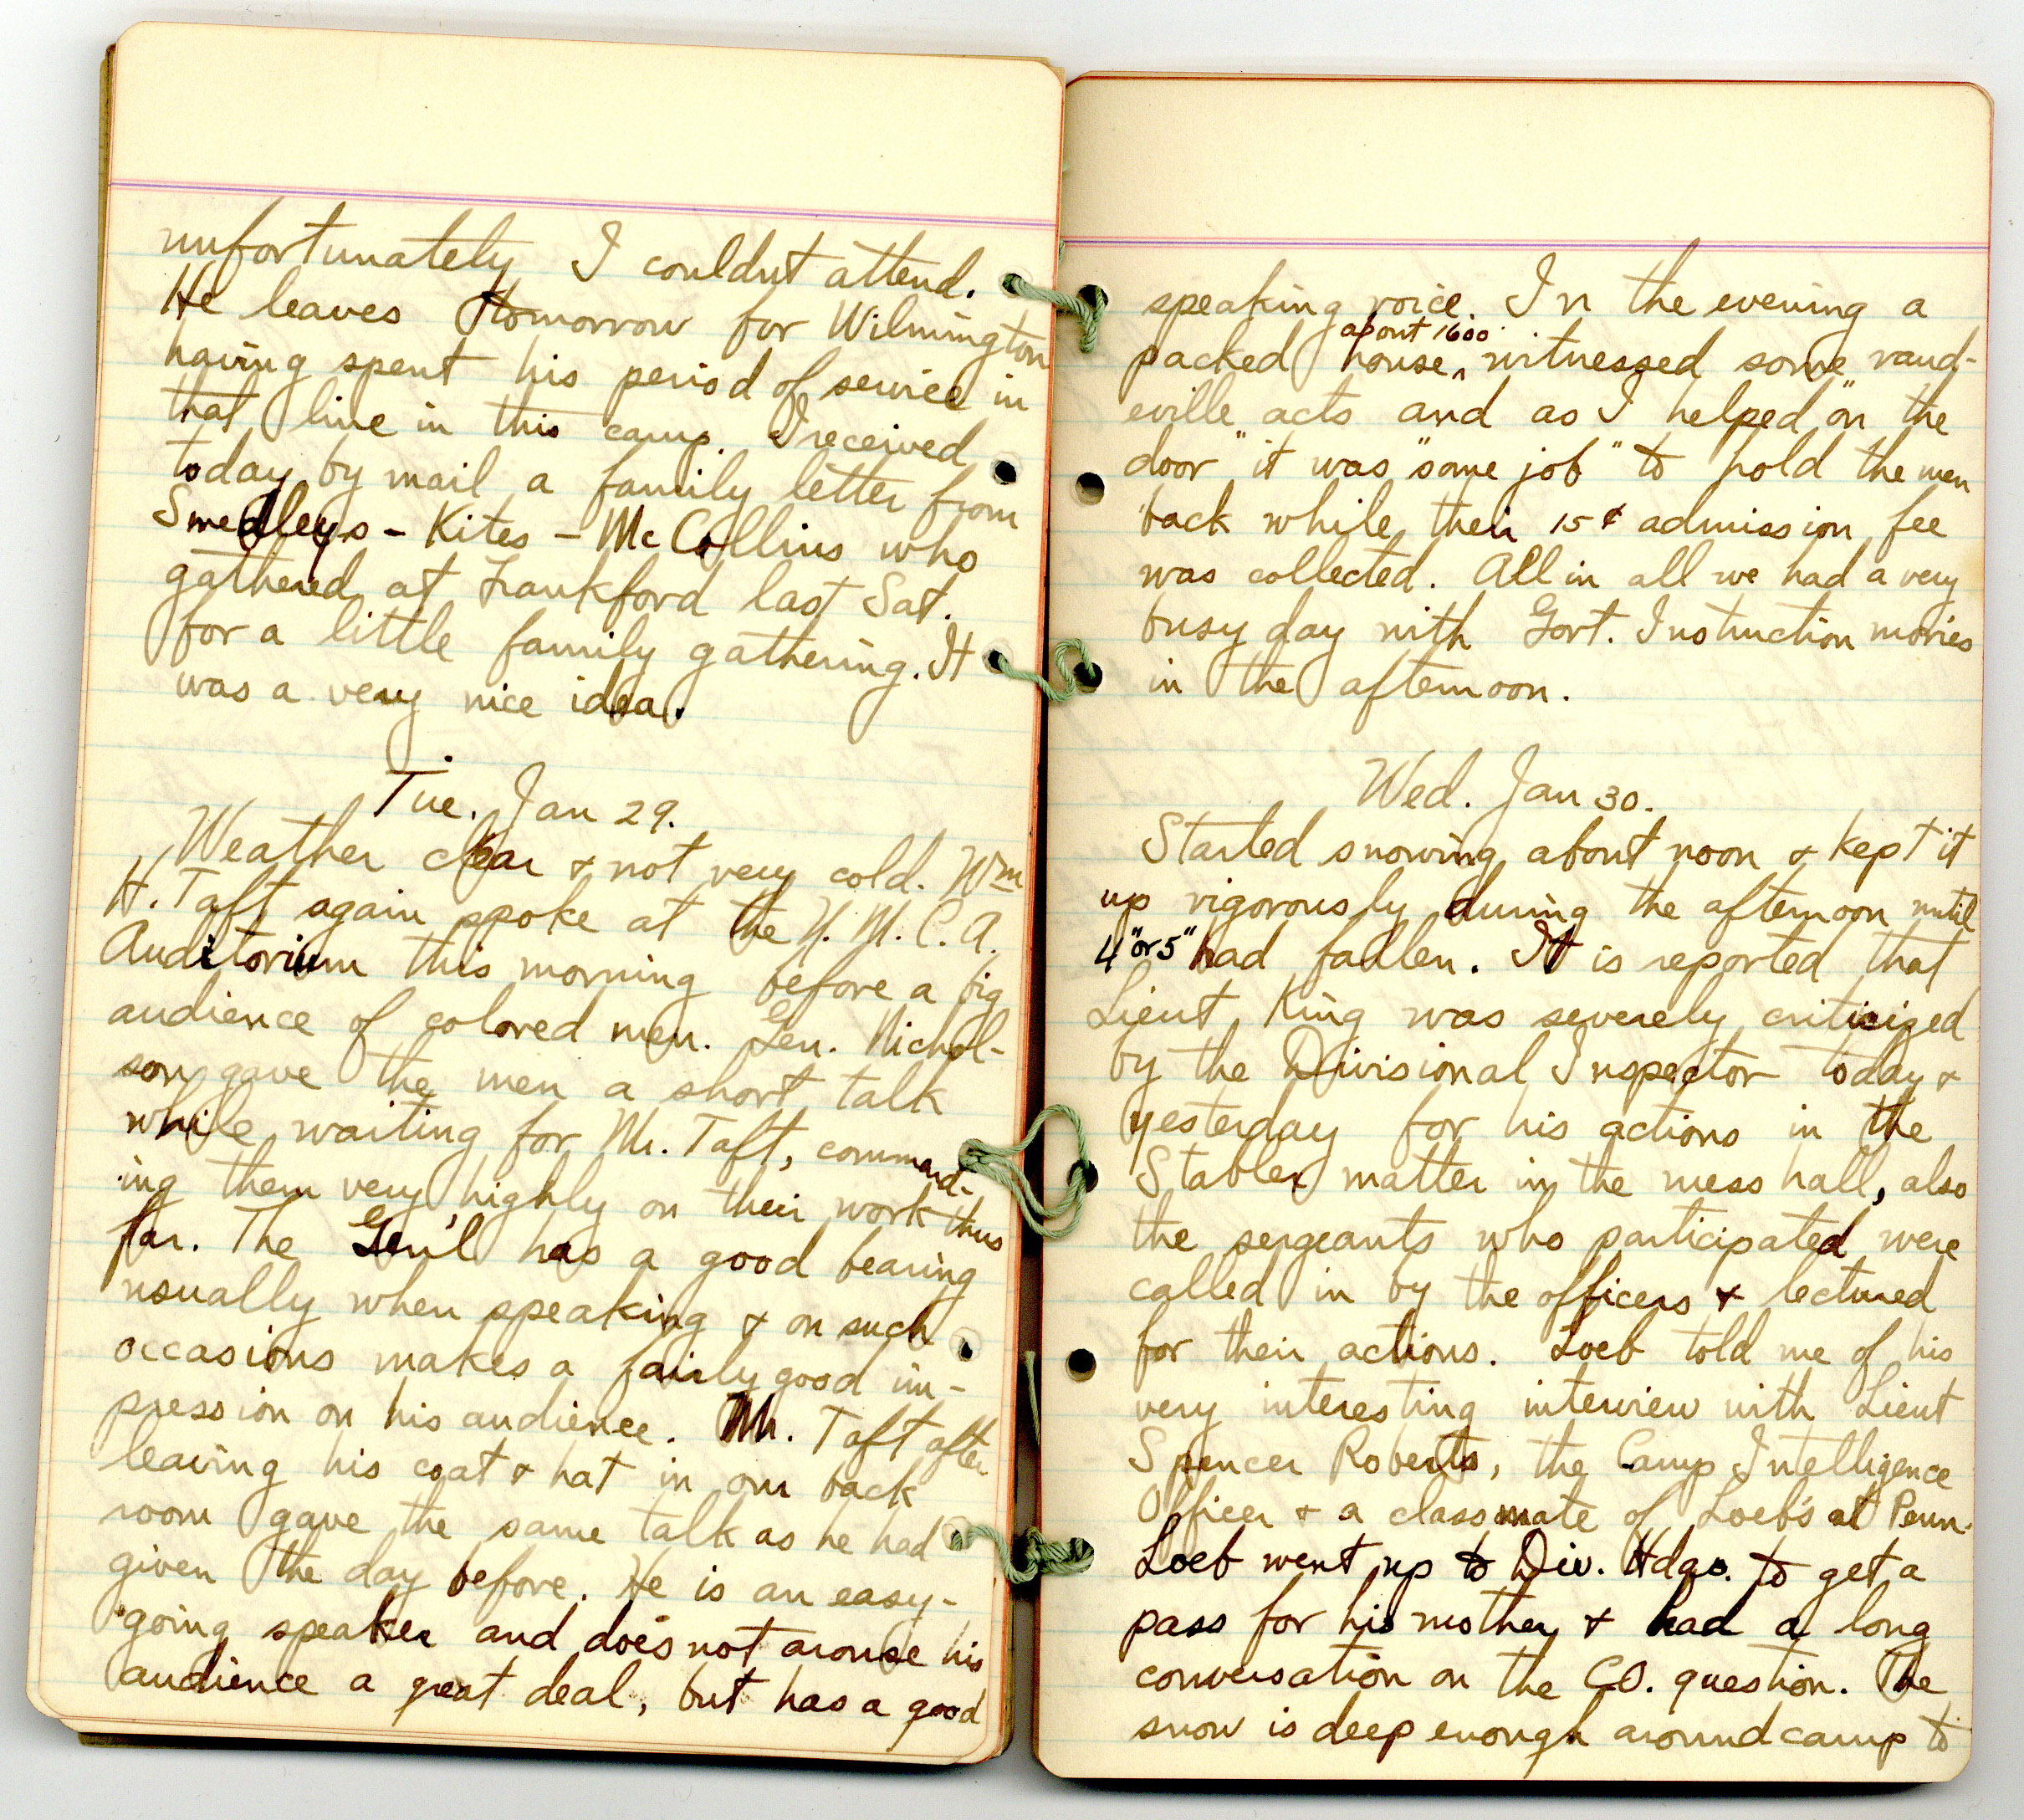 unfortunately I couldnt attend.
He leaves tomorrow for Wilmington
having spent his period of service in
that line in this camp. I received
today by mail a family letter from
Smedleys - Kites - McCollins who
gathered at Frankford last Sat.
for a little family gathering. It
was a very nice idea.
Tue. Jan 29.
Weather clear & not very cold. Wm
H. Taft again spoke at the Y.M.C.A.
Auditorium this morning before a big
audience of colored men. Gen. Nichol-
son gave the men a short talk
while waiting for Mr. Taft, commend-
ing them very highly on their work thus
far. The Gen'l has a good bearing
usually when speaking & on such
occasions makes a fairly good im-
pression on his audience. Mr. Taft after
leaving his coat & hat in our back
room gave the same talk as he had
given the day before. He is an easy-
going speaker and does not arouse his
audience a great deal, but has a good
speaking voice. In the evening a
about 1600
packed house ^ witnessed some vaud-
eville acts and as I helped "on the
door" it was "some job" to hold the men
back while their 15¢ admission fee
was collected. All in all we had a very
busy day with Govt. Instruction movies
in the afternoon.
Wed. Jan 30.
Started snowing about noon & kept it
up vigorously during the afternoon until
4" or 5" had fallen. It is reported that
Lieut. King was severely criticized
by the Divisional Inspector today &
yesterday for his actions in the
Stabler matter in the mess hall, also
the sergeants who participated were
called in by the officers & lectured
for their actions. Loeb told me of his
very interesting interview with Lieut
Spencer Roberts, the Camp Intelligence
Officer & a classmate of Loeb's at Penn.
Loeb went up to Div. Hdqs. to get a
pass for his mother & had a long
conversation on the C.O. question. The
snow is deep enough around camp to